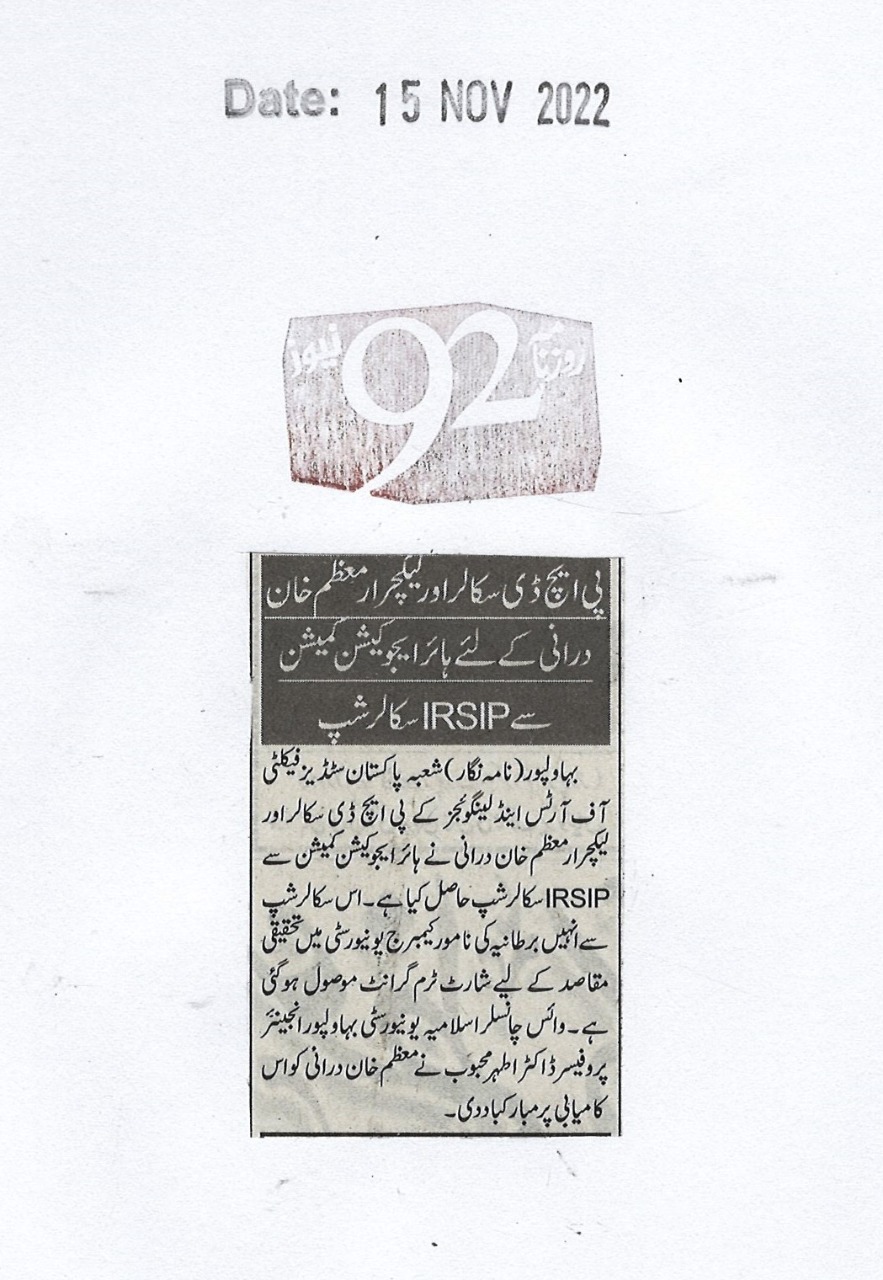 Date: 15 NOV 2022
روزنامہ 92 نیوز
پی ایچ ڈی سکالر اور لیکچرار معظم خان
درانی کے لئے ہائر ایجوکیشن کمیشن
سے IRSIP سکالرشپ
بہاولپور (نامہ نگار) شعبہ پاکستان سٹڈیز فیکلٹی
آف آرٹس اینڈ لینگوئجز کے پی ایچ ڈی سکالر اور
لیکچرار معظم خان درانی نے ہائر ایجوکیشن کمیشن سے
IRSIP سکالرشپ حاصل کیا ہے۔ اس سکالرشپ
سے انہیں برطانیہ کی نامور کیمبرج یونیورسٹی میں تحقیقی
مقاصد کے لیے شارٹ ٹرم گرانٹ موصول ہوگئی
ہے۔ وائس چانسلر اسلامیہ یونیورسٹی بہاولپور انجینئر
پروفیسر ڈاکٹر اطہر محبوب نے معظم خان درانی کو اس
کامیابی پر مبارکباد دی۔